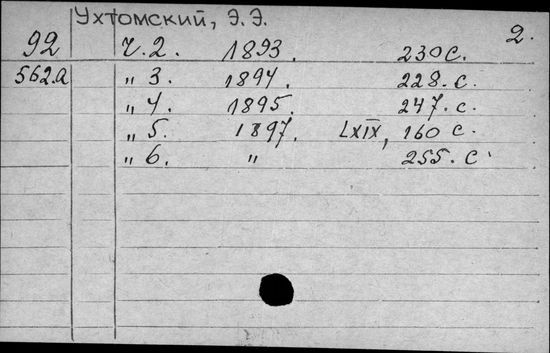 Ухтомский, Э. Э.
2.
92 Ч. 2. 1893. 230 с.
562.а „ 3. 1894. 228. с.
„ 4. 1895. 247. с.
„ 5. 1897. LXIX, 160 с.
„ 6. „ 255. с.